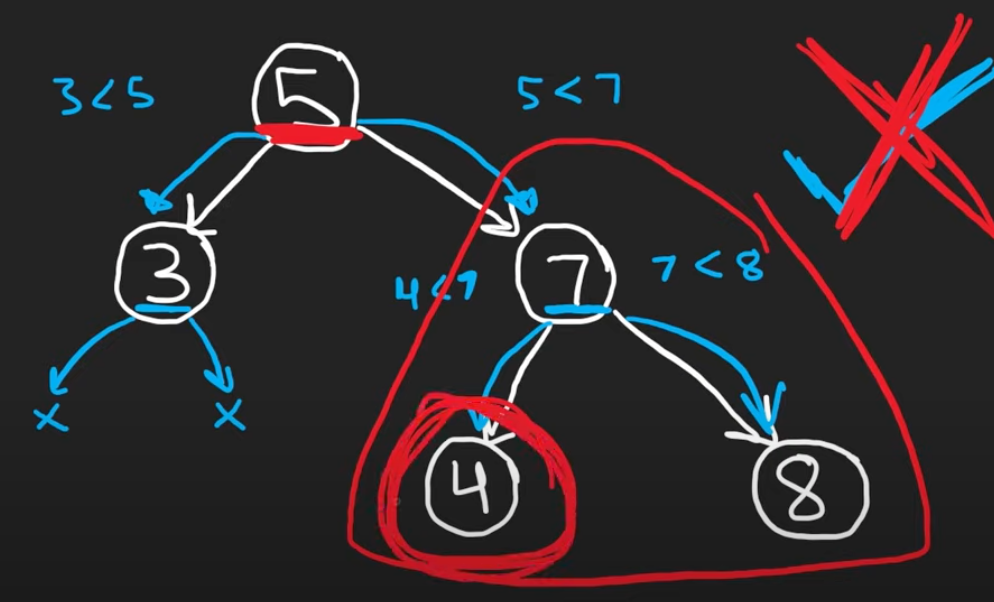 3<5
5
5<7
3
4<7
7
7<8
x
x
4
8